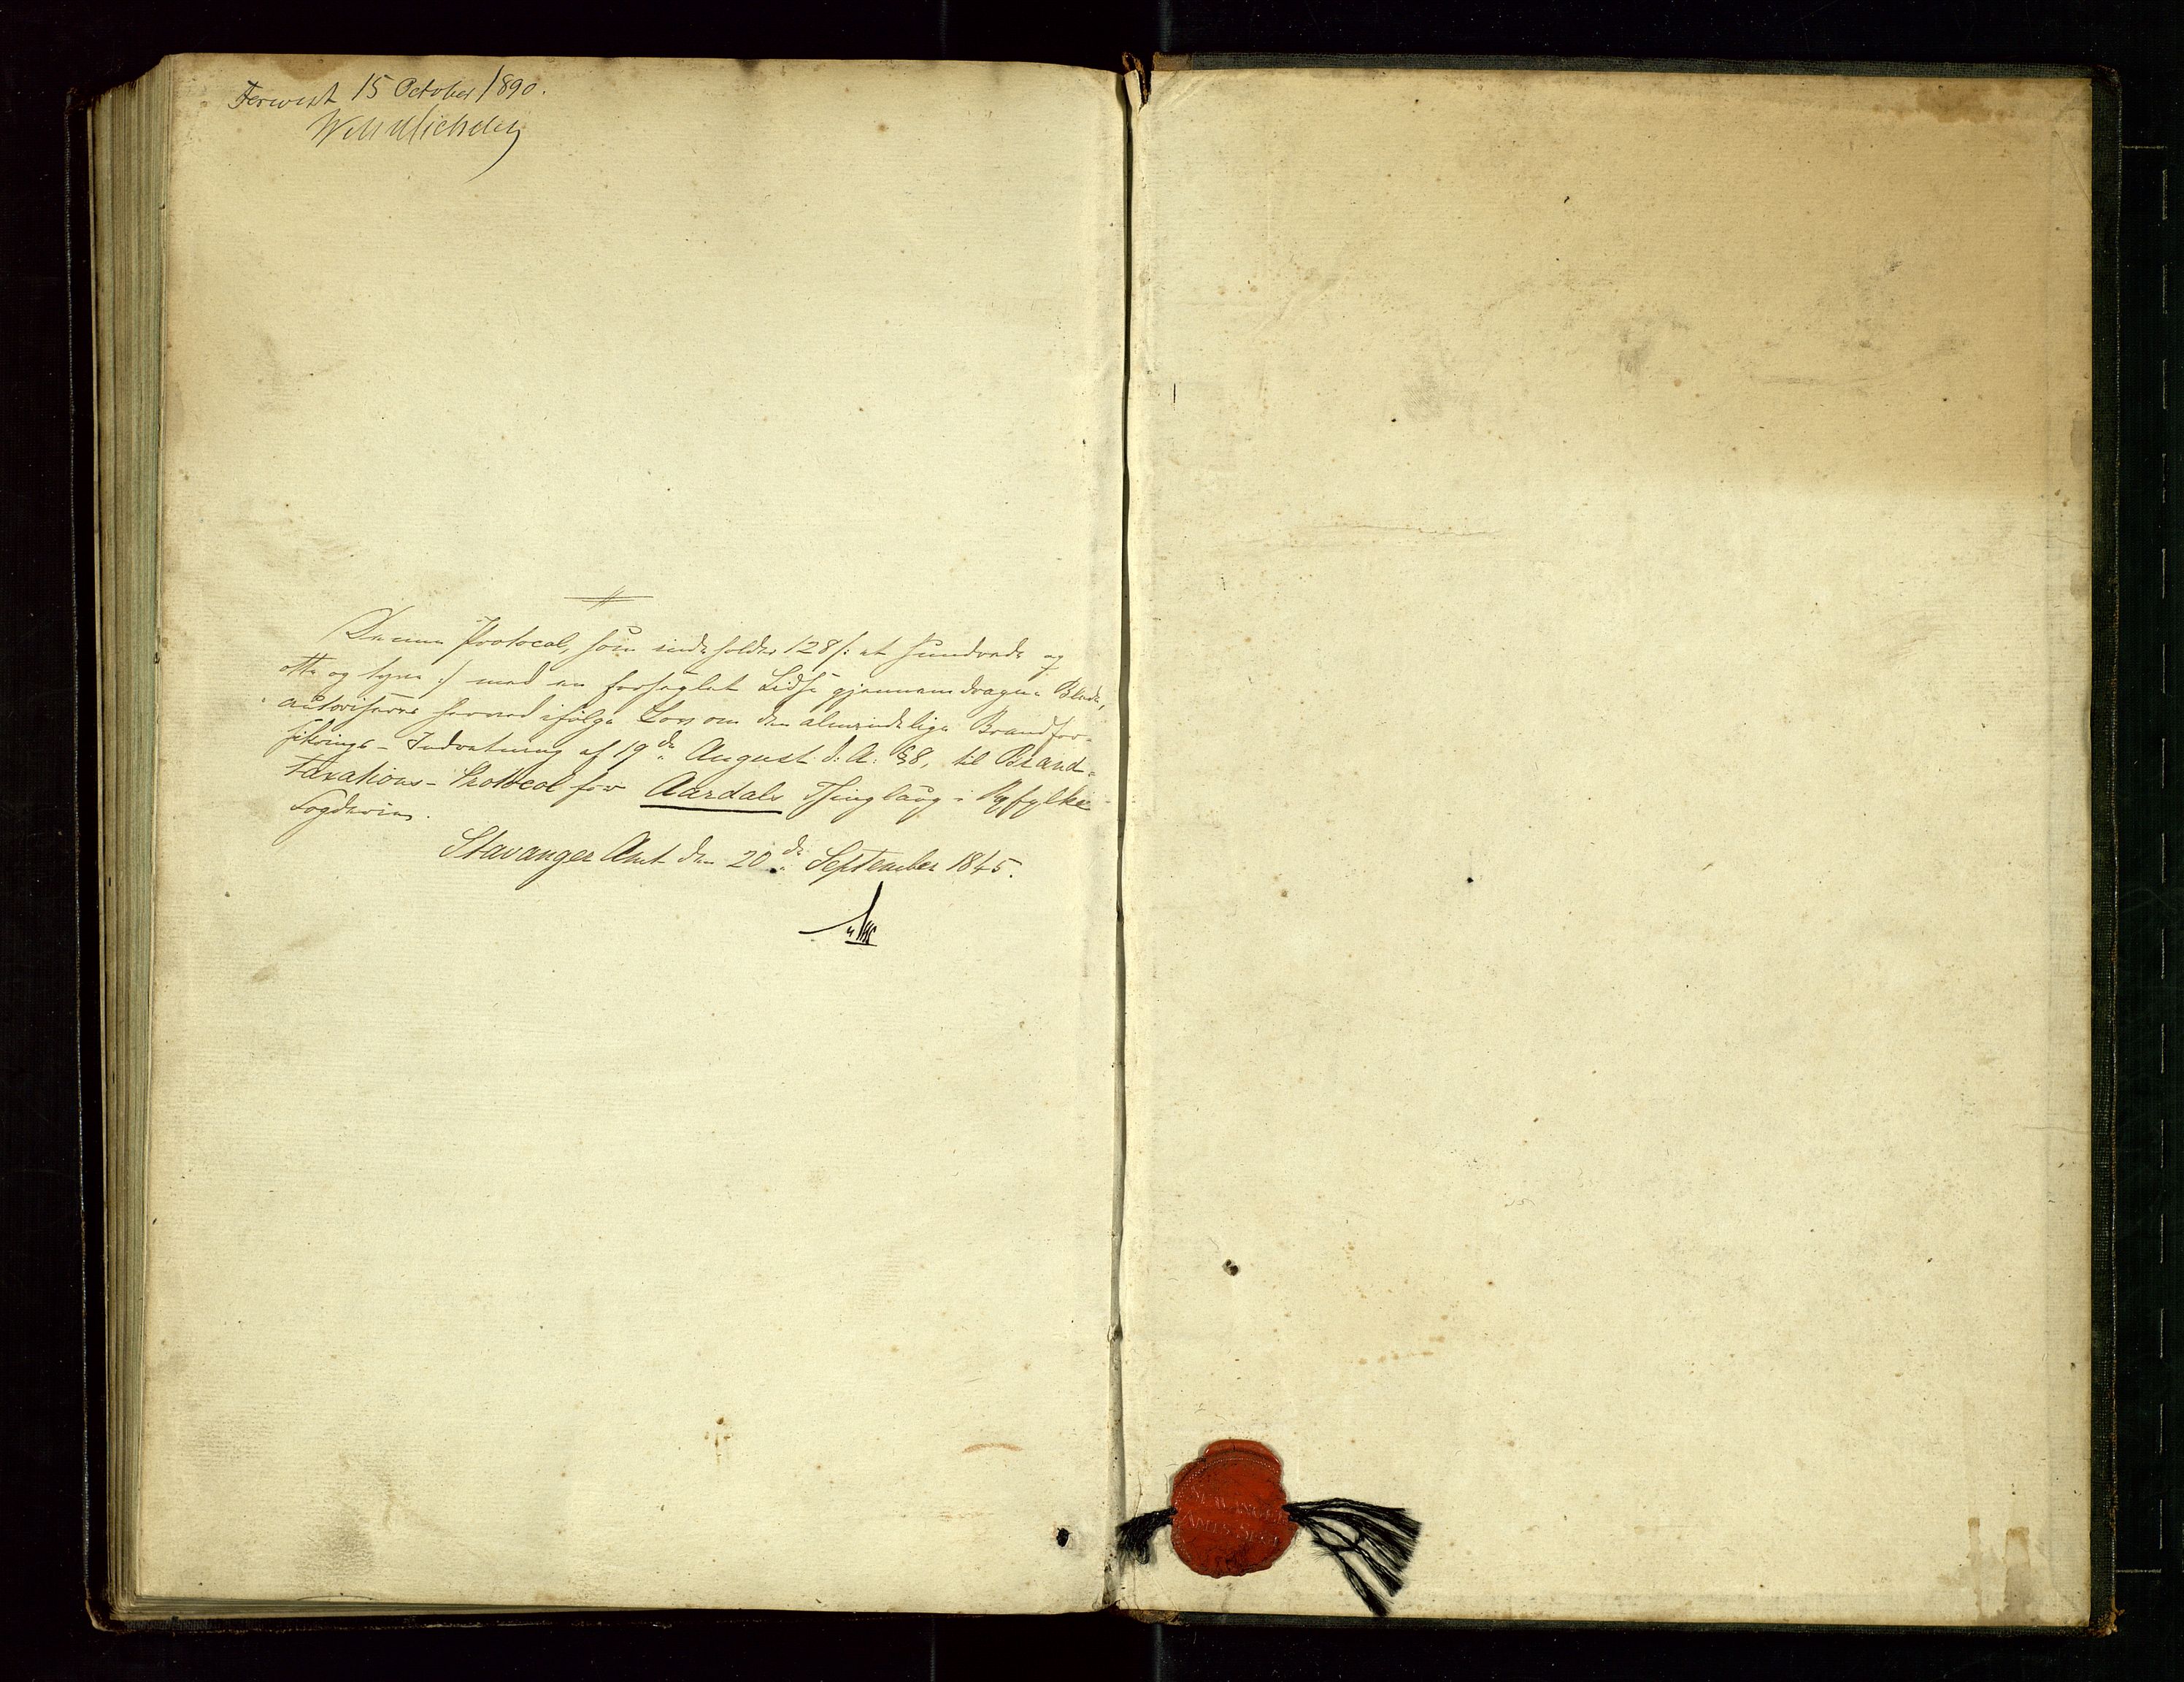 15 October 1890.
Denne Protocol, som indeholder 128 /: et hundrede og
otte og tyve :/ med en forseglet Lidse gjennemdragne Blade,
autoriseres herved ifølge Lov om den almindelige Brandfor-
sikrings-Indretning af 19de August d: A: §8, til Brand-
taxations-Protocol for Aardals Thinglaug i Ryfylke
Fogderie.
Stavanger Amt den 20de September 1845.